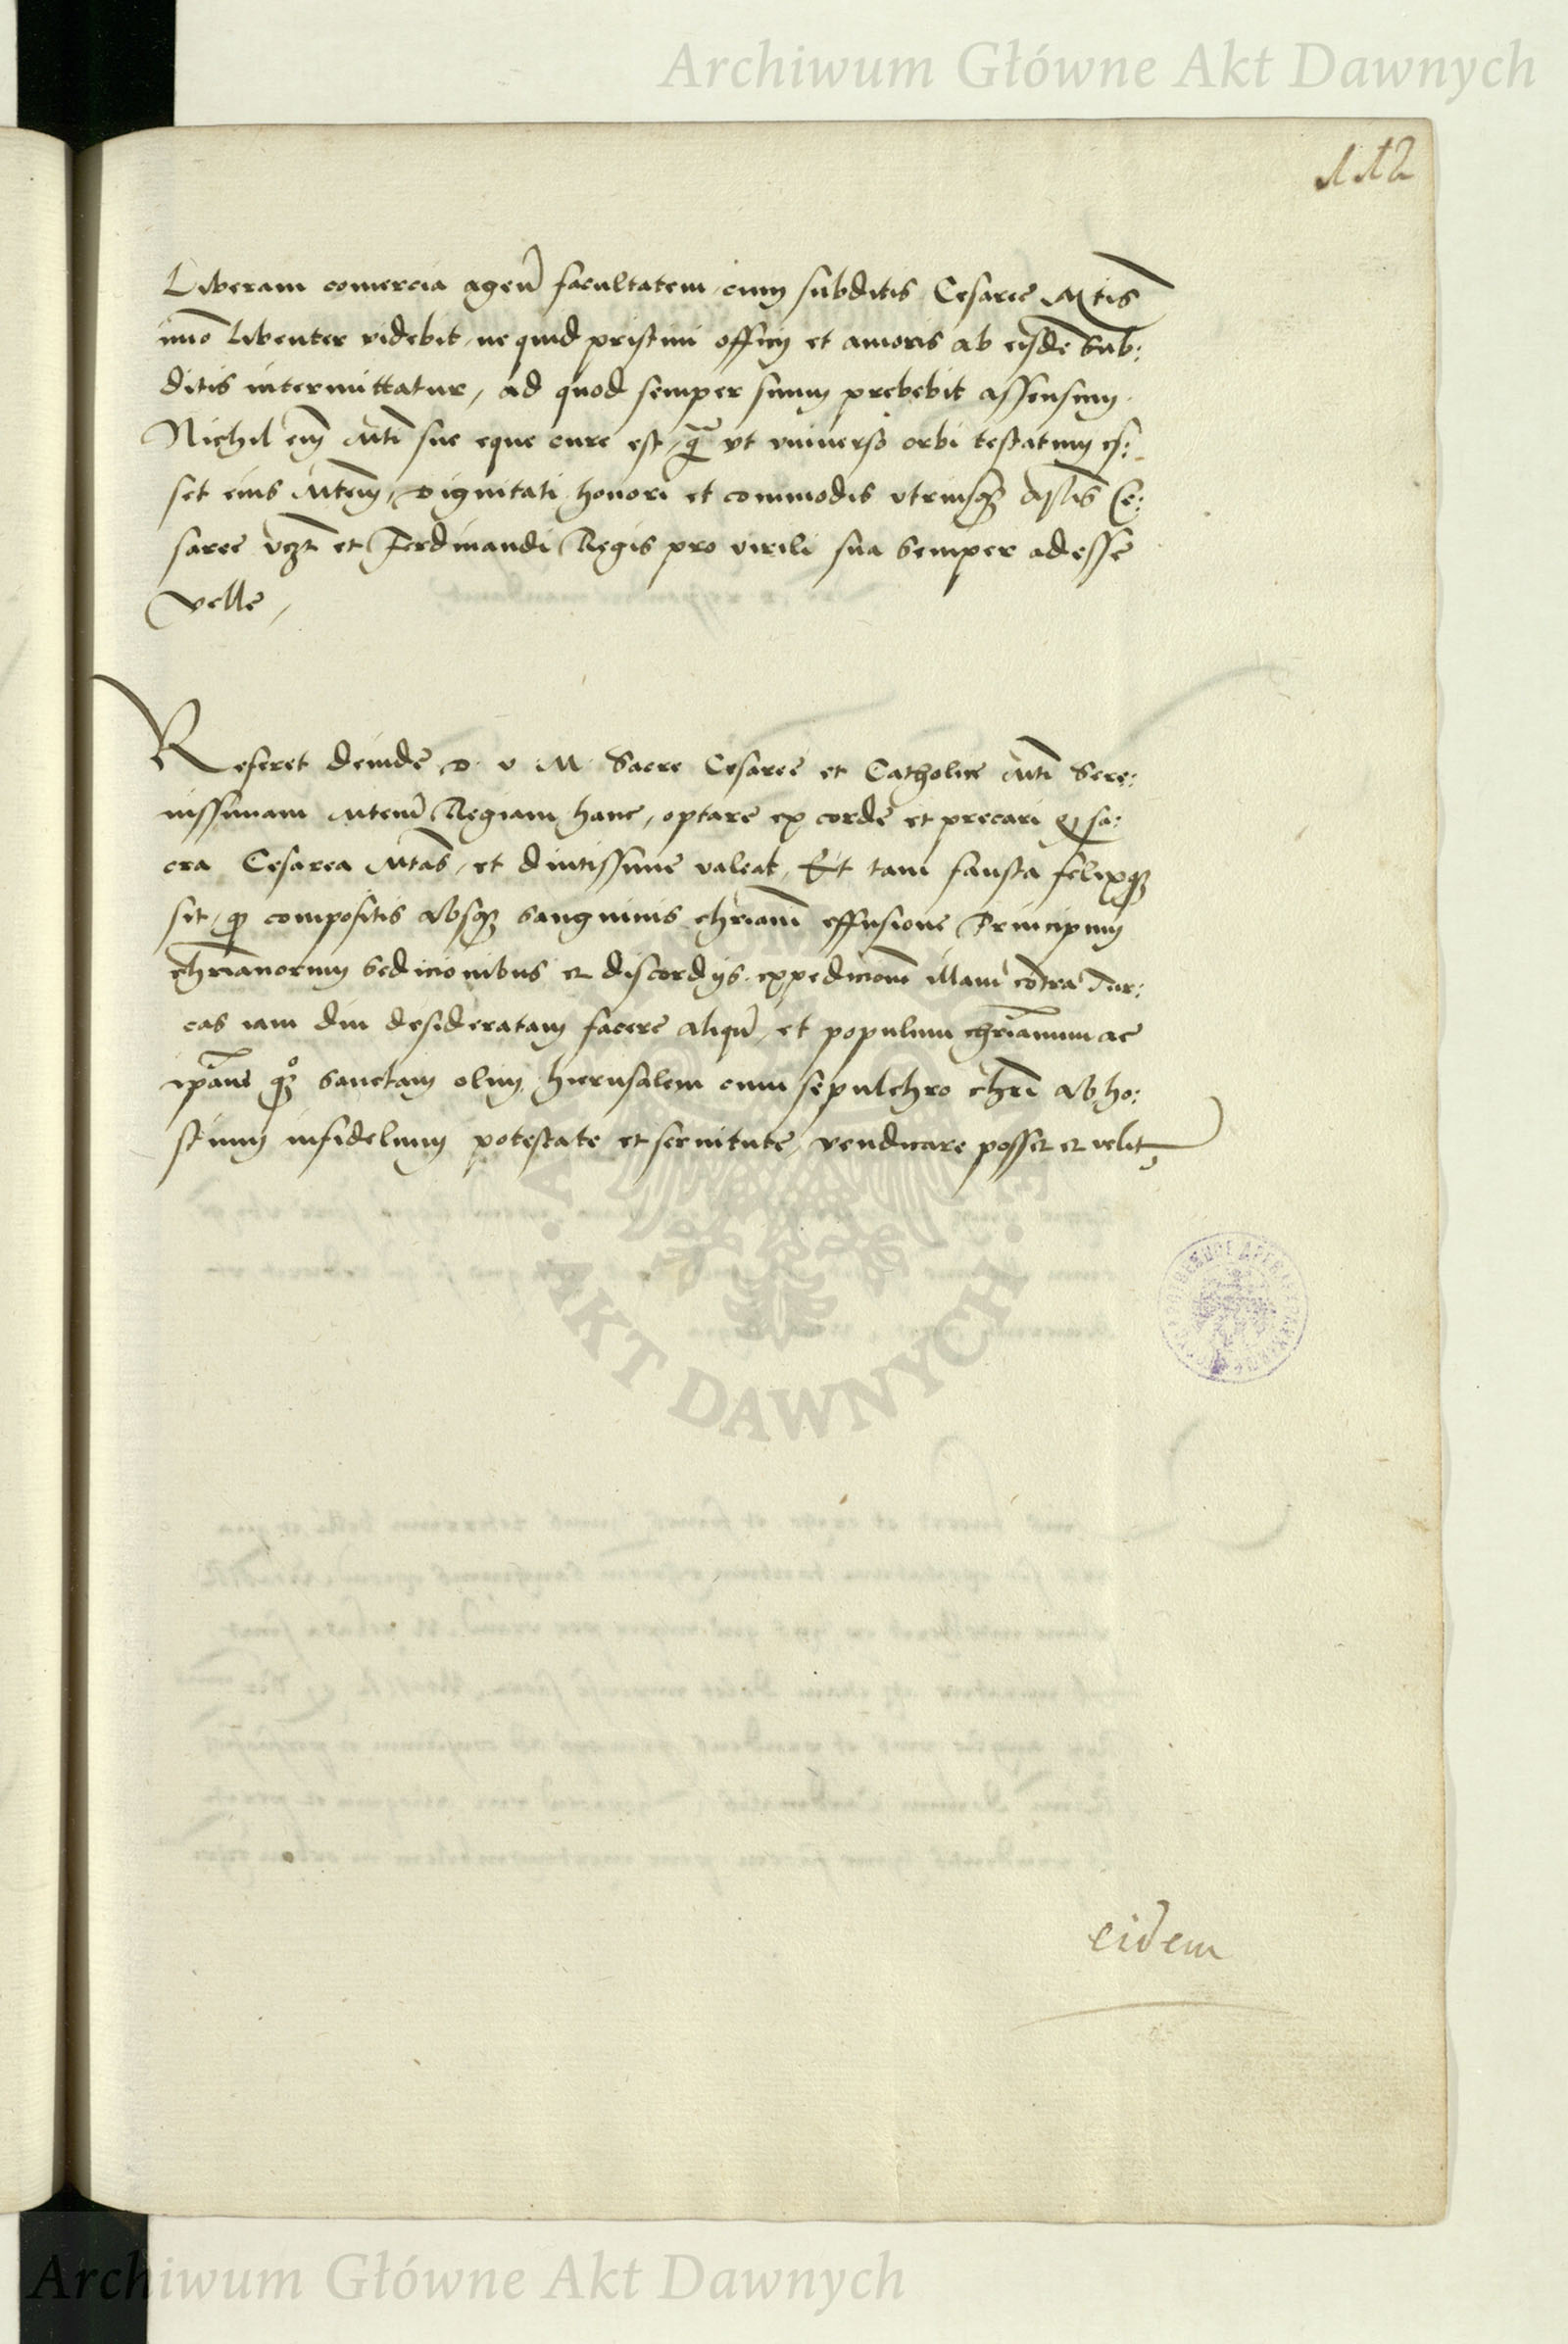 Archiwum Główne Akt Dawnych
112
Liberam comercia agen̄ facultatem cum subditis Cesaree Mtis
imo libenter videbit, ne quid pristini officij et amoris ab eisdē sub:
ditis intermittatur, ad quod semper suum prebebit assensum.
Nichil em̄ Mti sue eque cure est, q̄ vt vniuerso orbi testatum es:
set eius Mtem, dignitati honori et commodis vtriusq Mtis Ce:
saree vꝫt et Ferdinandi Regis pro virili sua semper adesse
velle,
Referet deinde D. v. M. Sacre Cesaree et Catholice Mti Sere:
nissimam Mtem̄ Regiam hanc, optare ex corde et precari ꝙ sa:
cra Cesarea Mtas, et diutissime valeat, Et tam fausta felixqꝫ
sit, ꝙ compositis absqꝫ sanguinis chriani effusione Principum
chrianorum sedicionibus et discordijs, expedicionē illam cōtra Tur:
cas iam diu desideratam facere aliqn̄, et populum chrianum ac
ipām qꝫ sanctam olim hierusalem cum sepulchro chri ab ho:
stium infidelium potestate et seruitute, vendicare posset et velit,
AKT DAWNYCH
eidem
Archiwum Główne Akt Dawnych